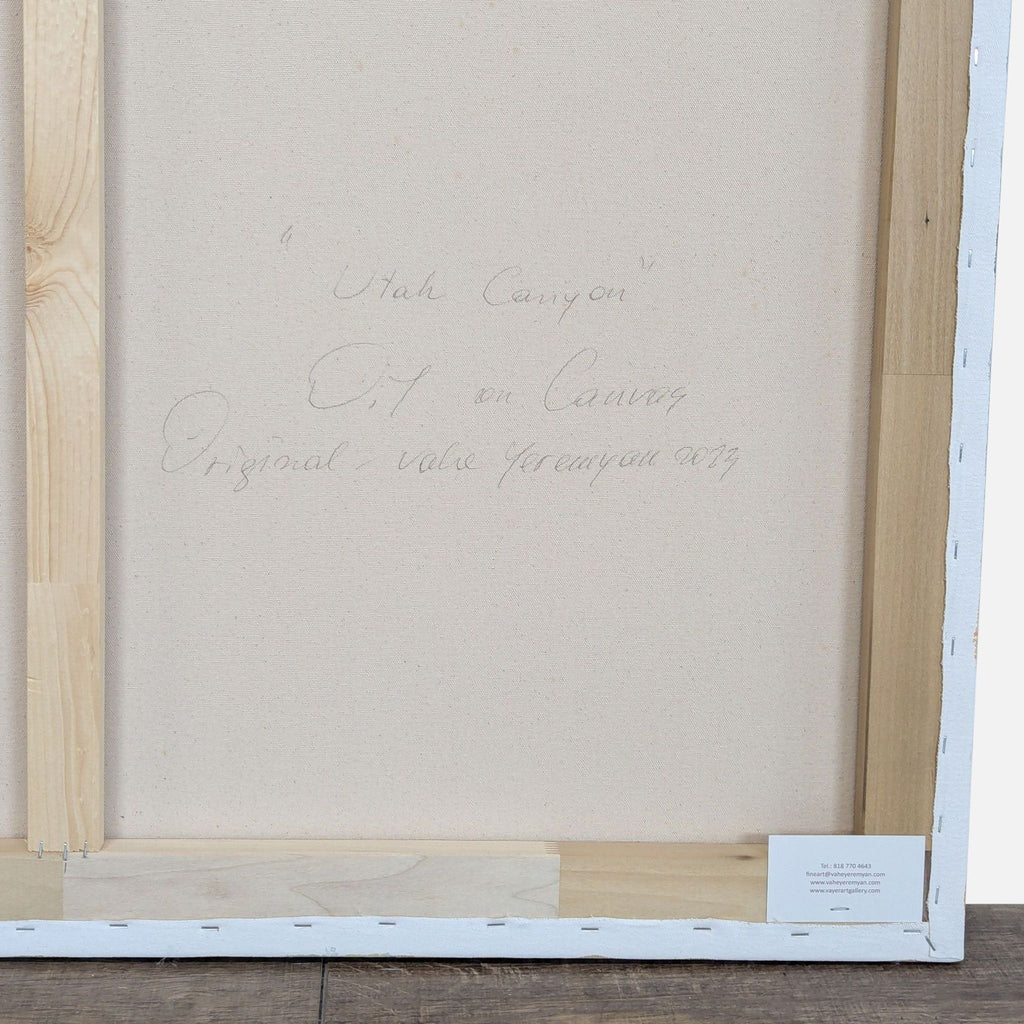 "Utah Canyon"
Oil on Canvas
Original - Vahe Yeremyan
Tel.: 818 770 4643
fineart@vaheyeremyan.com
www.vaheyeremyan.com
www.vayerartgallery.com